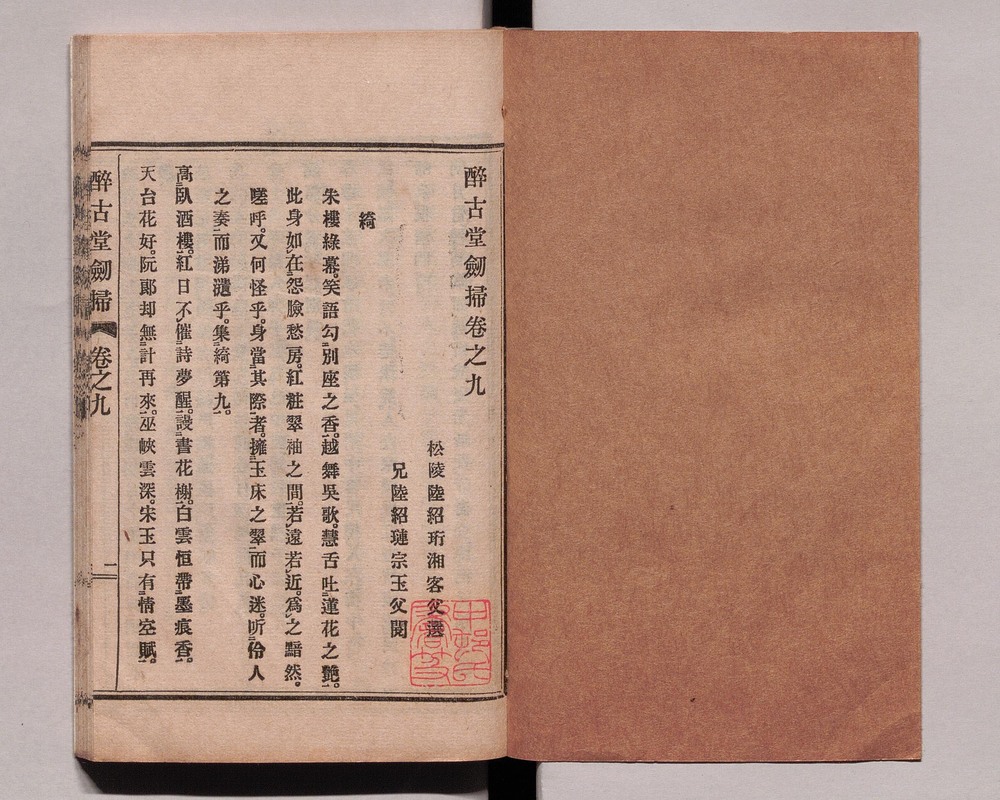 醉古堂劒掃卷之九
松陵陸紹珩湘客父選
兄陸紹璉宗玉父閱
綺
朱樓綠幕。笑語勾別座之香。越舞吳歌。慧舌吐蓮花之艷。
此身如在怨臉愁房。紅粧翠袖之間。若遠若近。爲之黯然。
嗟呼。又何怪乎。身當其際者。擁玉床之翠而心迷。听伶人
之奏而涕隕乎。集綺第九。
高臥酒樓。紅日不催詩夢醒。謾書花榭。白雲恒帶墨痕香。
天台花好。阮郞却無計再來。巫峽雲深。宋玉只有情空賦。
醉古堂劒掃 卷之九